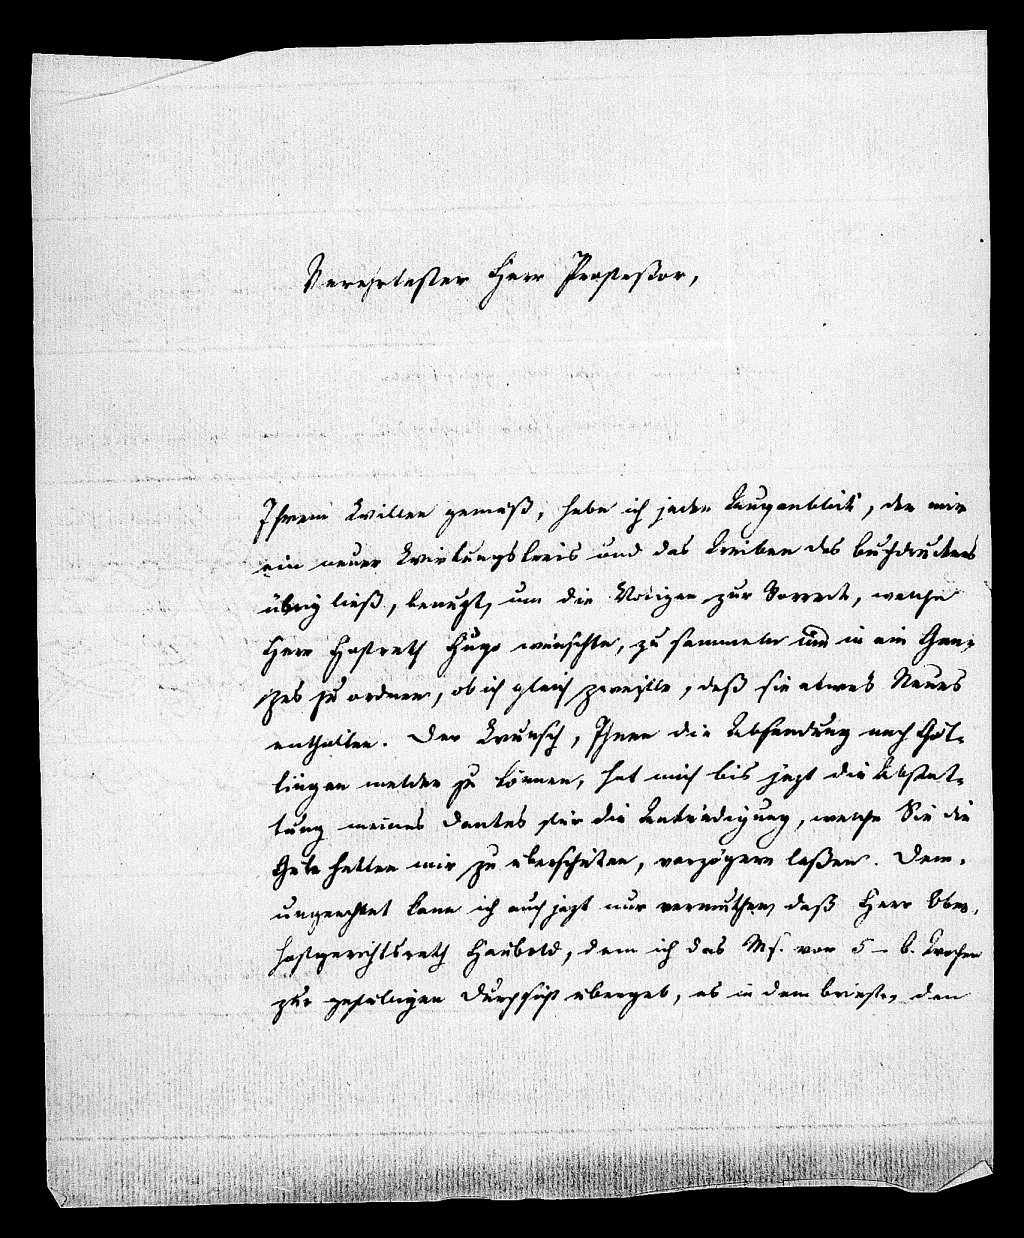 Verehrtester Herr Professor,
Ihrem Willen gemäß, habe ich jeden Augenblick, den mir
ein neuer Wirkungskreis und das Treiben des Buchdruckers
übrig ließ, benuzt, um die Notizen zur Vorrede, welche
Herr Hofrath Hugo wünschte, zu sammeln und in ein Gan-
zes zu ordnen, ob ich gleich zweifelte, daß sie etwas Neues
enthalten. Der Wunsch, Ihnen die Absendung nach Göt-
tingen melden zu können, hat mich bis jezt die Abstat-
tung meines Dankes für die Ankündigung, welche Sie die
Güte hatten mir zu überschicken, verzögern laßen. Dem-
ungeachtet kann ich auch jezt nur vermuthen, daß Herr Ober-
hofgerichtsrath Haubold, dem ich das Ms. vor 5 – 6. Wochen
zur gefälligen Durchsicht übergab, es in dem Briefe, den